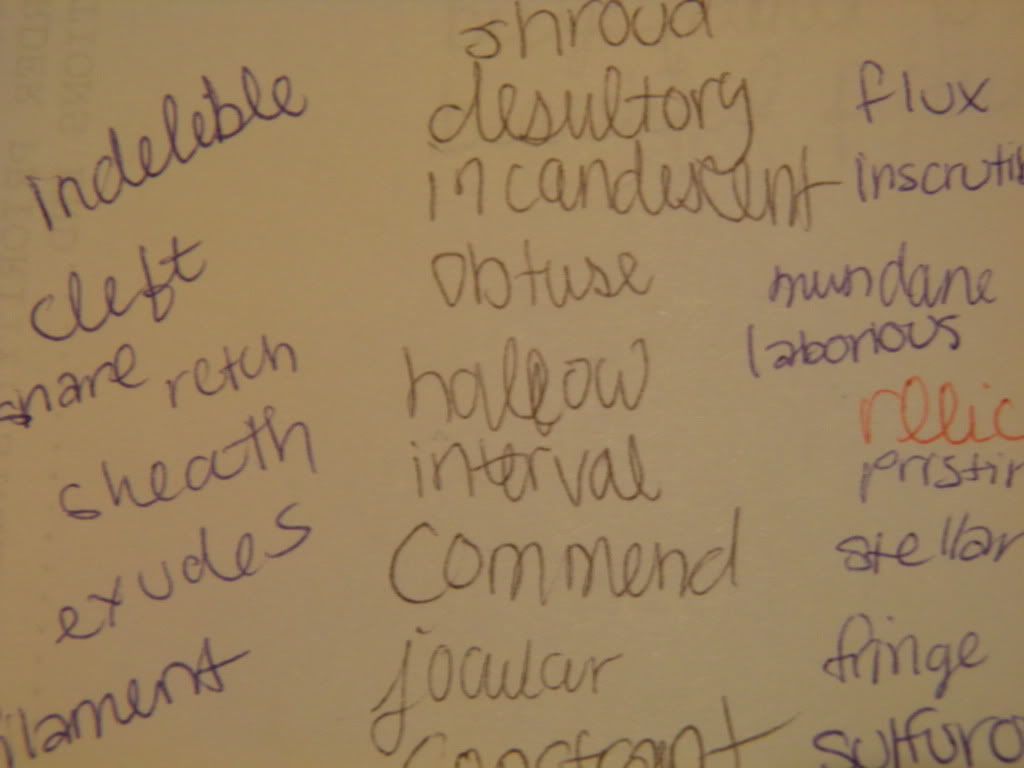 indelible
cleft
snare retch
sheath
exudes
ilament
shroud
desultory
incandescent
obtuse
hallow
interval
Commend
jocular
flux
inscrutib
mundane
laborious
rellic
pristin
stellar
fringe
sulfuro